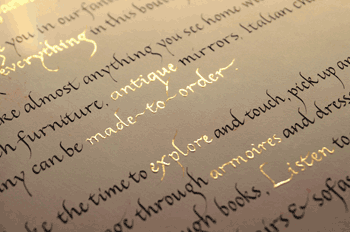 you in our fan
everything in this bou
ke almost anything you see home w
h furniture, antique mirrors, Italian ch
ny can be made~to~order.
ke the time to explore and touch, pick up an
ge through armoires and dress
ugh books. Listen to
irs & sofas